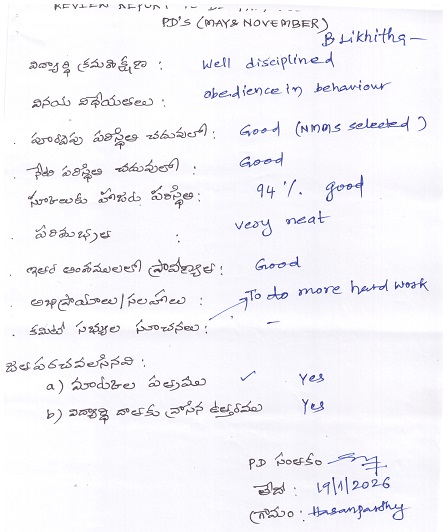 REVIEW REPORT TO BE
P.D'S (MAY & NOVEMBER)
B Likhitha
విద్యార్థి క్రమశిక్షణ : Well disciplined
వినయ విధేయతలు : obedience in behaviour
పూర్వపు పరిస్థితి చదువులో : Good (NMMS selected)
నేటి పరిస్థితి చదువులో : Good
స్కూలుకు హాజరు పరిస్థితి : 94 %. good
పరిశుభ్రత : very neat
ఇతర అంశములలో ప్రావీణ్యత : Good
అభిప్రాయాలు/సలహాలు : To do more hard work
కమిటీ సభ్యుల సూచనలు : –
జతపరచవలసినవి :
a) మార్కుల పత్రము ✓ Yes
b) విద్యార్థి దాతకు వ్రాసిన ఉత్తరము Yes
P.D సంతకం
తేదీ : 19/1/2026
గ్రామం : Hasanparthy